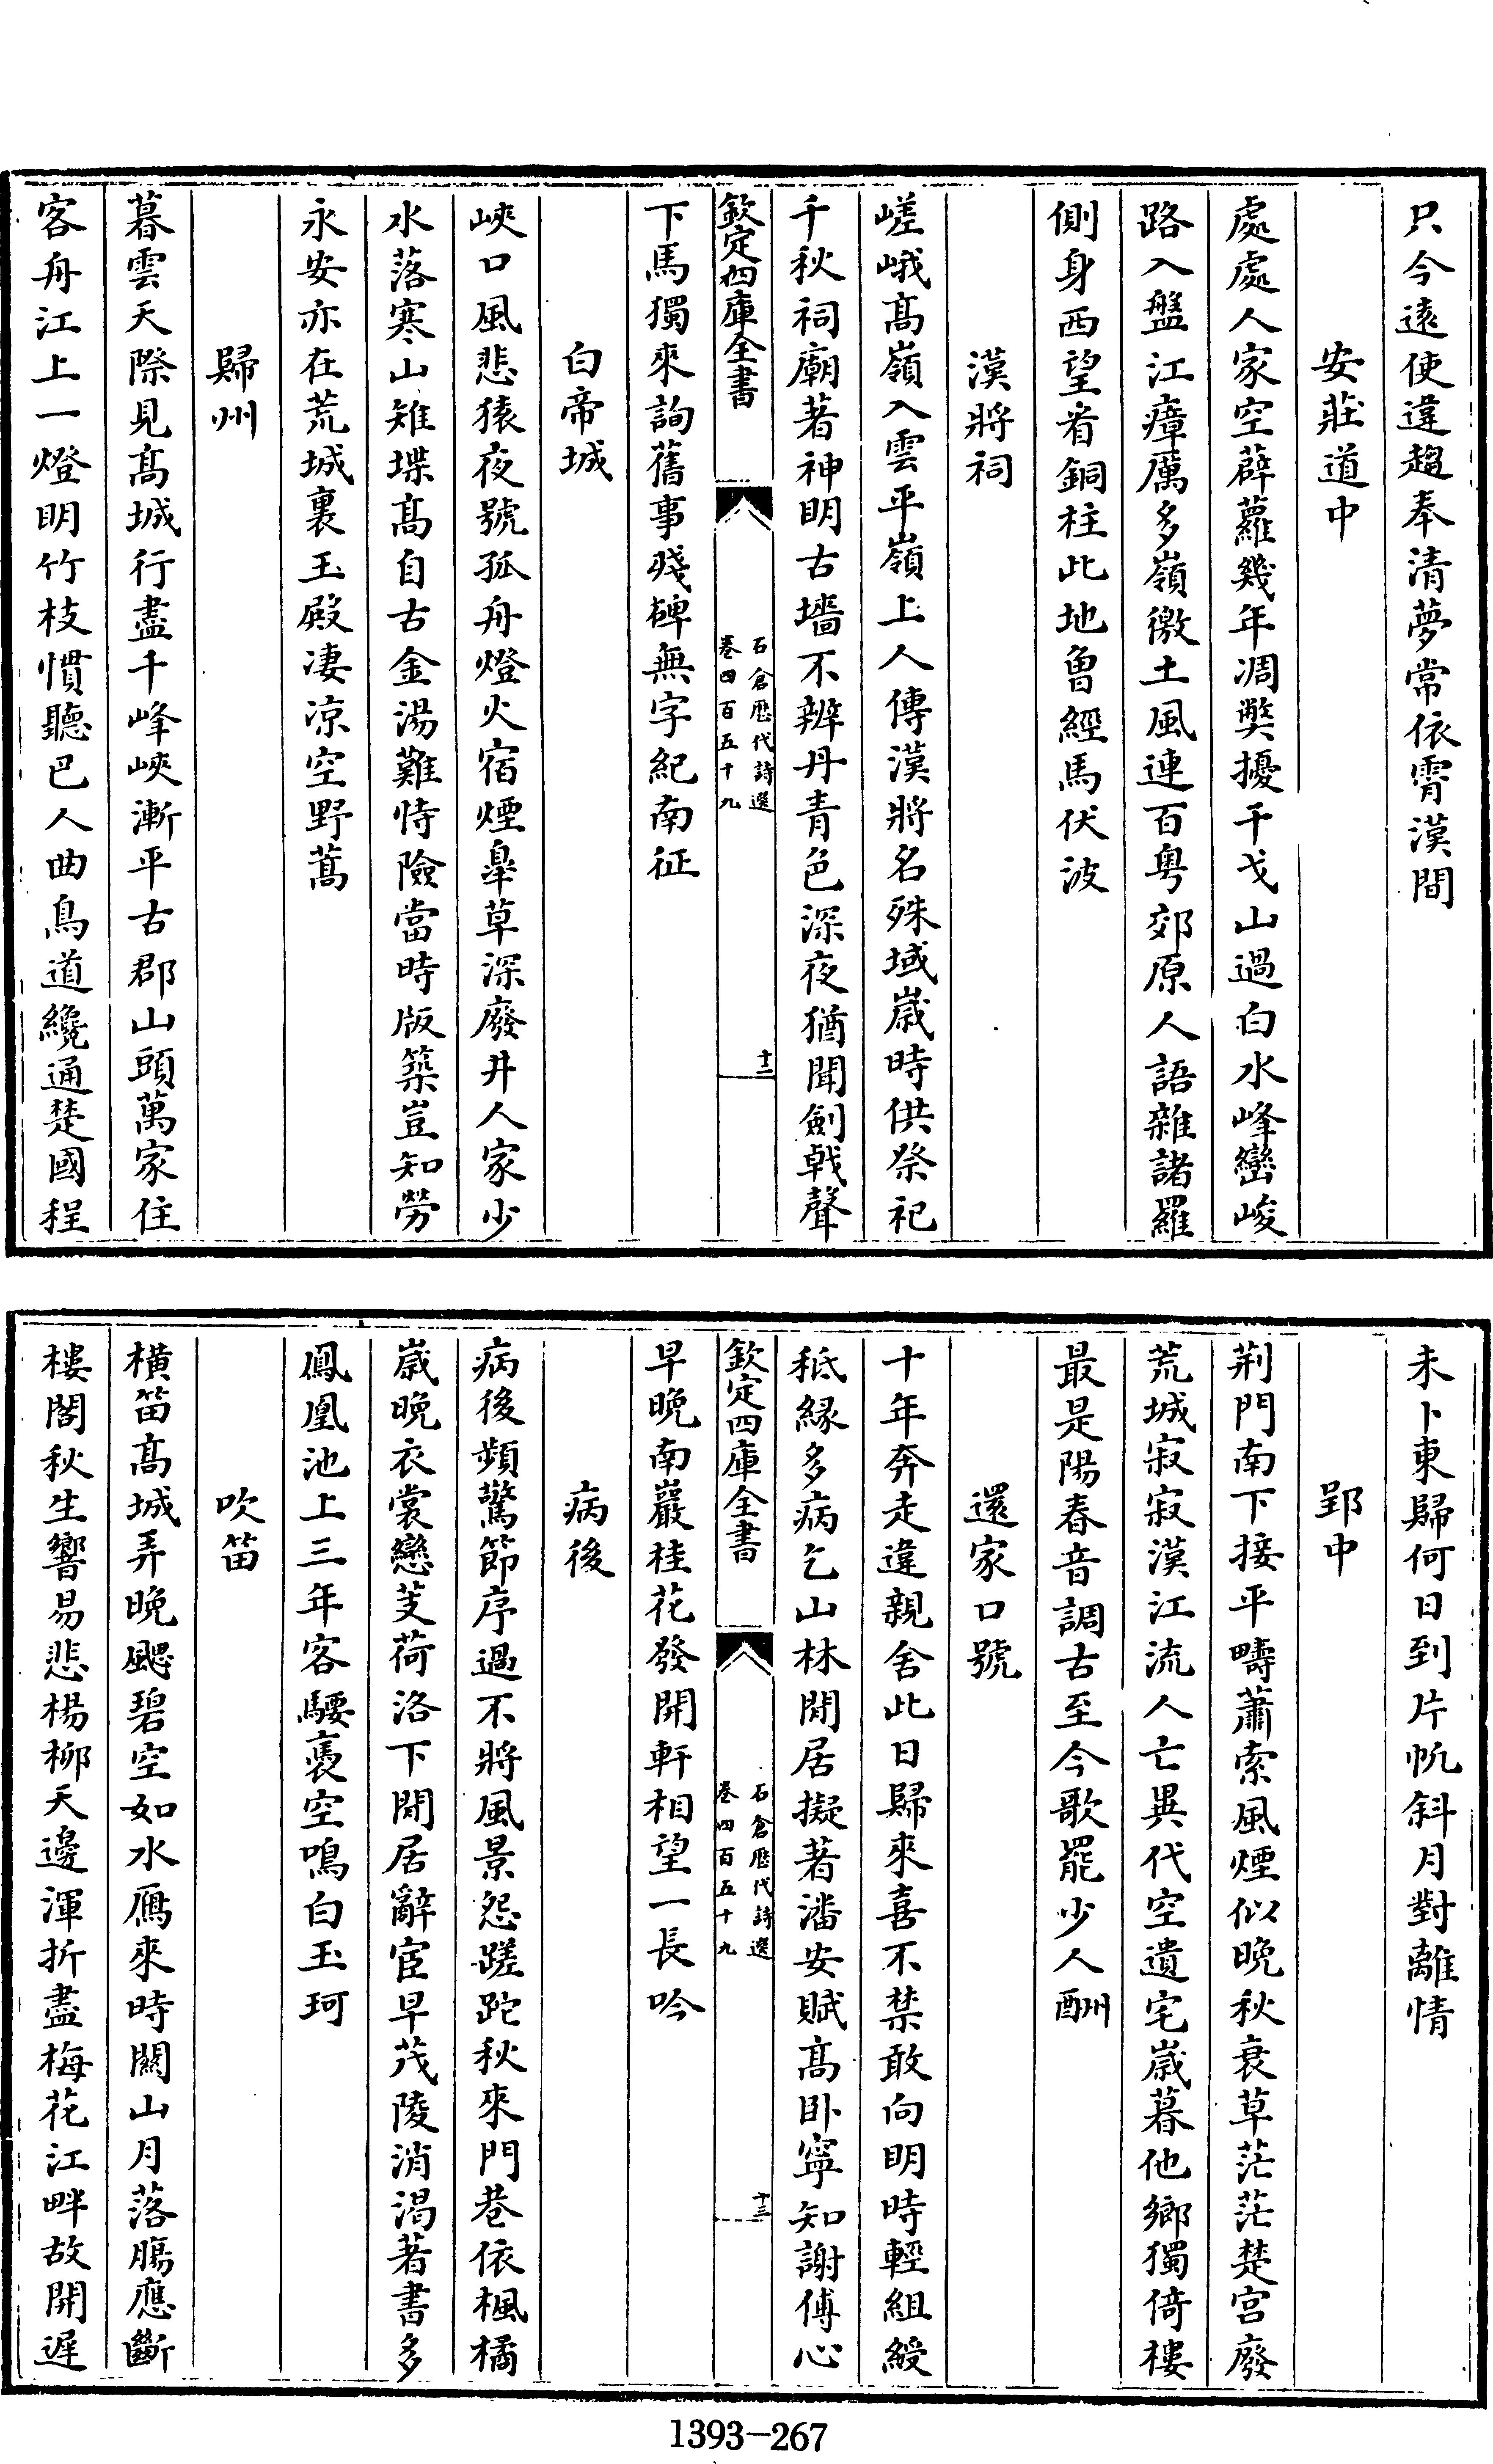 只今遠使違趨奉清夢常依霄漢間
安莊道中
處處人家空薜蘿幾年凋獘擾干戈山過白水峰巒峻
路入盤江瘴厲多嶺徼土風連百粤郊原人語雜諸羅
側身西望看銅柱此地曾經馬伏波
漢將祠
嵯峨髙嶺入雲平嶺上人傳漢將名殊域嵗時供祭祀
千秋祠廟著神明古墻不辨丹青色深夜猶聞劍㦸聲
欽定四庫全書
石倉歴代詩選
卷四百五十九
十二
下馬獨來詢舊事殘碑無字紀南征
白帝城
峽口風悲猿夜號孤舟燈火宿煙臯草深廢井人家少
水落寒山雉堞髙自古金湯難恃險當時版築豈知勞
永安亦在荒城裏玉殿凄凉空野蒿
歸州
暮雲天際見髙城行盡千峰峽漸平古郡山頭萬家住
客舟江上一燈明竹枝慣聽巴人曲鳥道纔通楚國程
未卜東歸何日到片帆斜月對離情
郢中
荆門南下接平疇蕭索風煙似晩秋衰草茫茫楚宫廢
荒城寂寂漢江流人亡異代空遺宅嵗暮他鄉獨倚樓
最是陽春音調古至今歌罷少人酬
還家口號
十年奔走違親舍此日歸來喜不禁敢向明時輕組綬
秪縁多病乞山林閒居擬著潘安賦髙卧寧知謝傅心
欽定四庫全書
石倉歴代詩選
卷四百五十九
十三
早晚南巖桂花發開軒相望一長吟
病後
病後頻驚節序過不將風景怨蹉跎秋來門巷依楓橘
嵗晚衣裳戀芰荷洛下閒居辭宦早茂陵消渴著書多
鳳凰池上三年客騕褭空鳴白玉珂
吹笛
横笛髙城弄晚颸碧空如水鴈來時關山月落腸應斷
樓閣秋生響易悲楊柳天邊渾折盡梅花江畔故開遲
1393-267